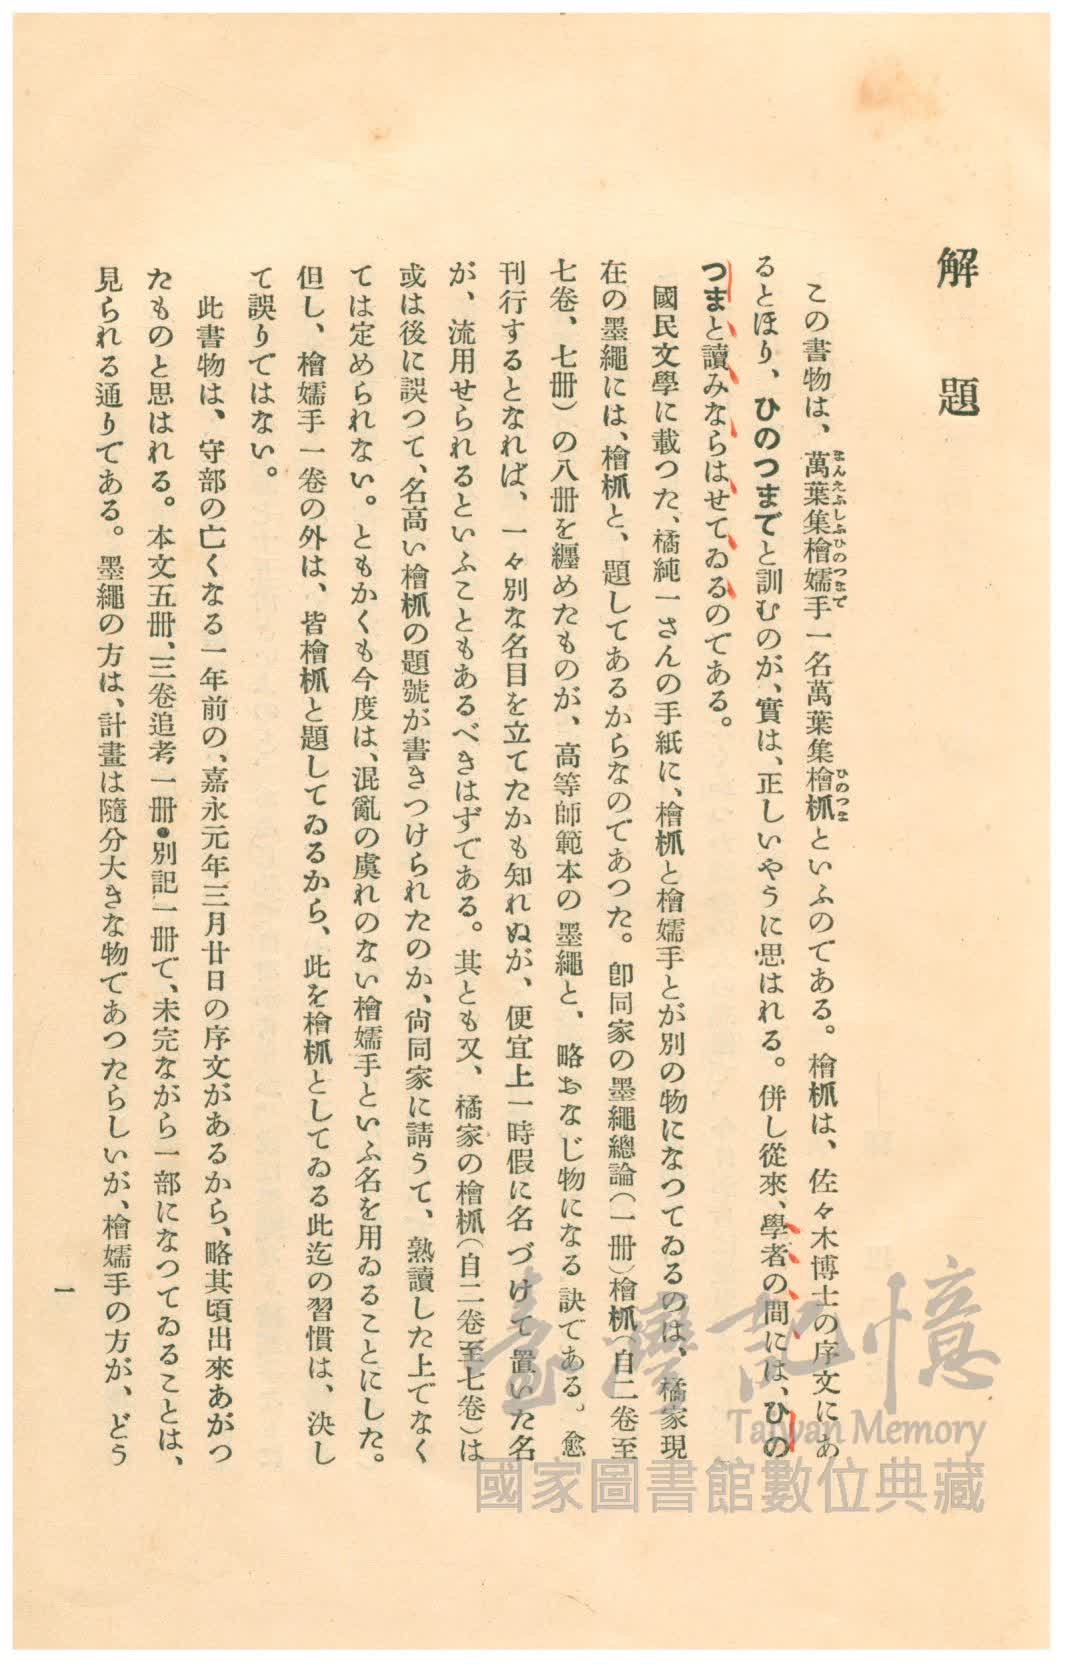 解題
この書物は、萬葉集檜嬬手一名萬葉集檜枛といふのである。檜枛は、佐々木博士の序文にあ
るとほり、ひのつまでと訓むのが、實は、正しいやうに思はれる。併し從來、學者の間には、ひの
つまと讀みならはせてゐるのである。
國民文學に載つた、橘純一さんの手紙に、檜枛と檜嬬手とが別の物になつてゐるのは、橘家現
在の墨繩には、檜枛と、題してあるからなのであつた。卽同家の墨繩總論（一册）檜枛（自二卷至
七卷、七册）の八册を纒めたものが、高等師範本の墨繩と、略おなじ物になる訣である。愈
刊行するとなれば、一々別な名目を立てたかも知れぬが、便宜上一時假に名づけて置いた名
が、流用せられるといふこともあるべきはずである。其とも又、橘家の檜枛（自二卷至七卷）は
或は後に誤つて、名高い檜枛の題號が書きつけられたのか、尙同家に請うて、熟讀した上でなく
ては定められない。ともかくも今度は、混亂の虞れのない檜嬬手といふ名を用ゐることにした。
但し、檜嬬手一卷の外は、皆檜枛と題してゐるから、此を檜枛としてゐる此迄の習慣は、決し
て誤りではない。
此書物は、守部の亡くなる一年前の、嘉永元年三月廿日の序文があるから、略其頃出來あがつ
たものと思はれる。本文五册、三卷追考一册・別記一册で、未完ながら一部になつてゐることは、
見られる通りである。墨繩の方は、計畫は隨分大きな物であつたらしいが、檜嬬手の方が、どう
一
まんえふしふひのつまで
ひのつま
臺灣記憶
Taiwan Memory
國家圖書館數位典藏